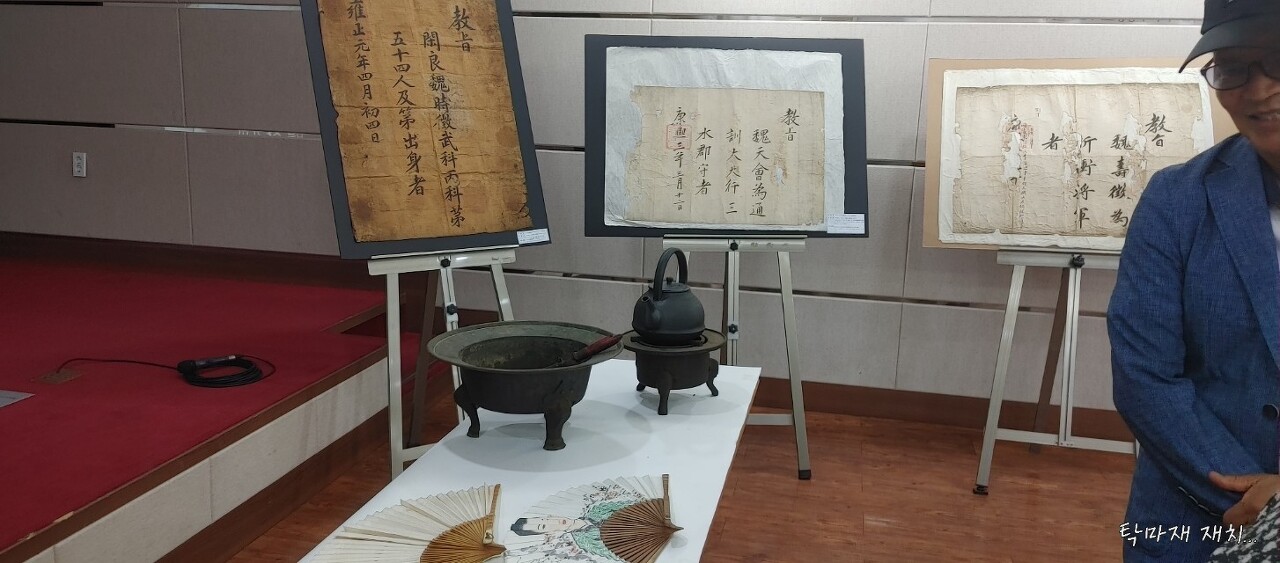 教旨
閑良魏時徵武科丙科苐
五十四人及第出身者
雍正元年四月初四日
教旨
魏天會為通
訓大夫行三
水郡守者
康熙三年三月十二日
教旨
魏壽徵為
折衝將軍
者
탁마재 재치...